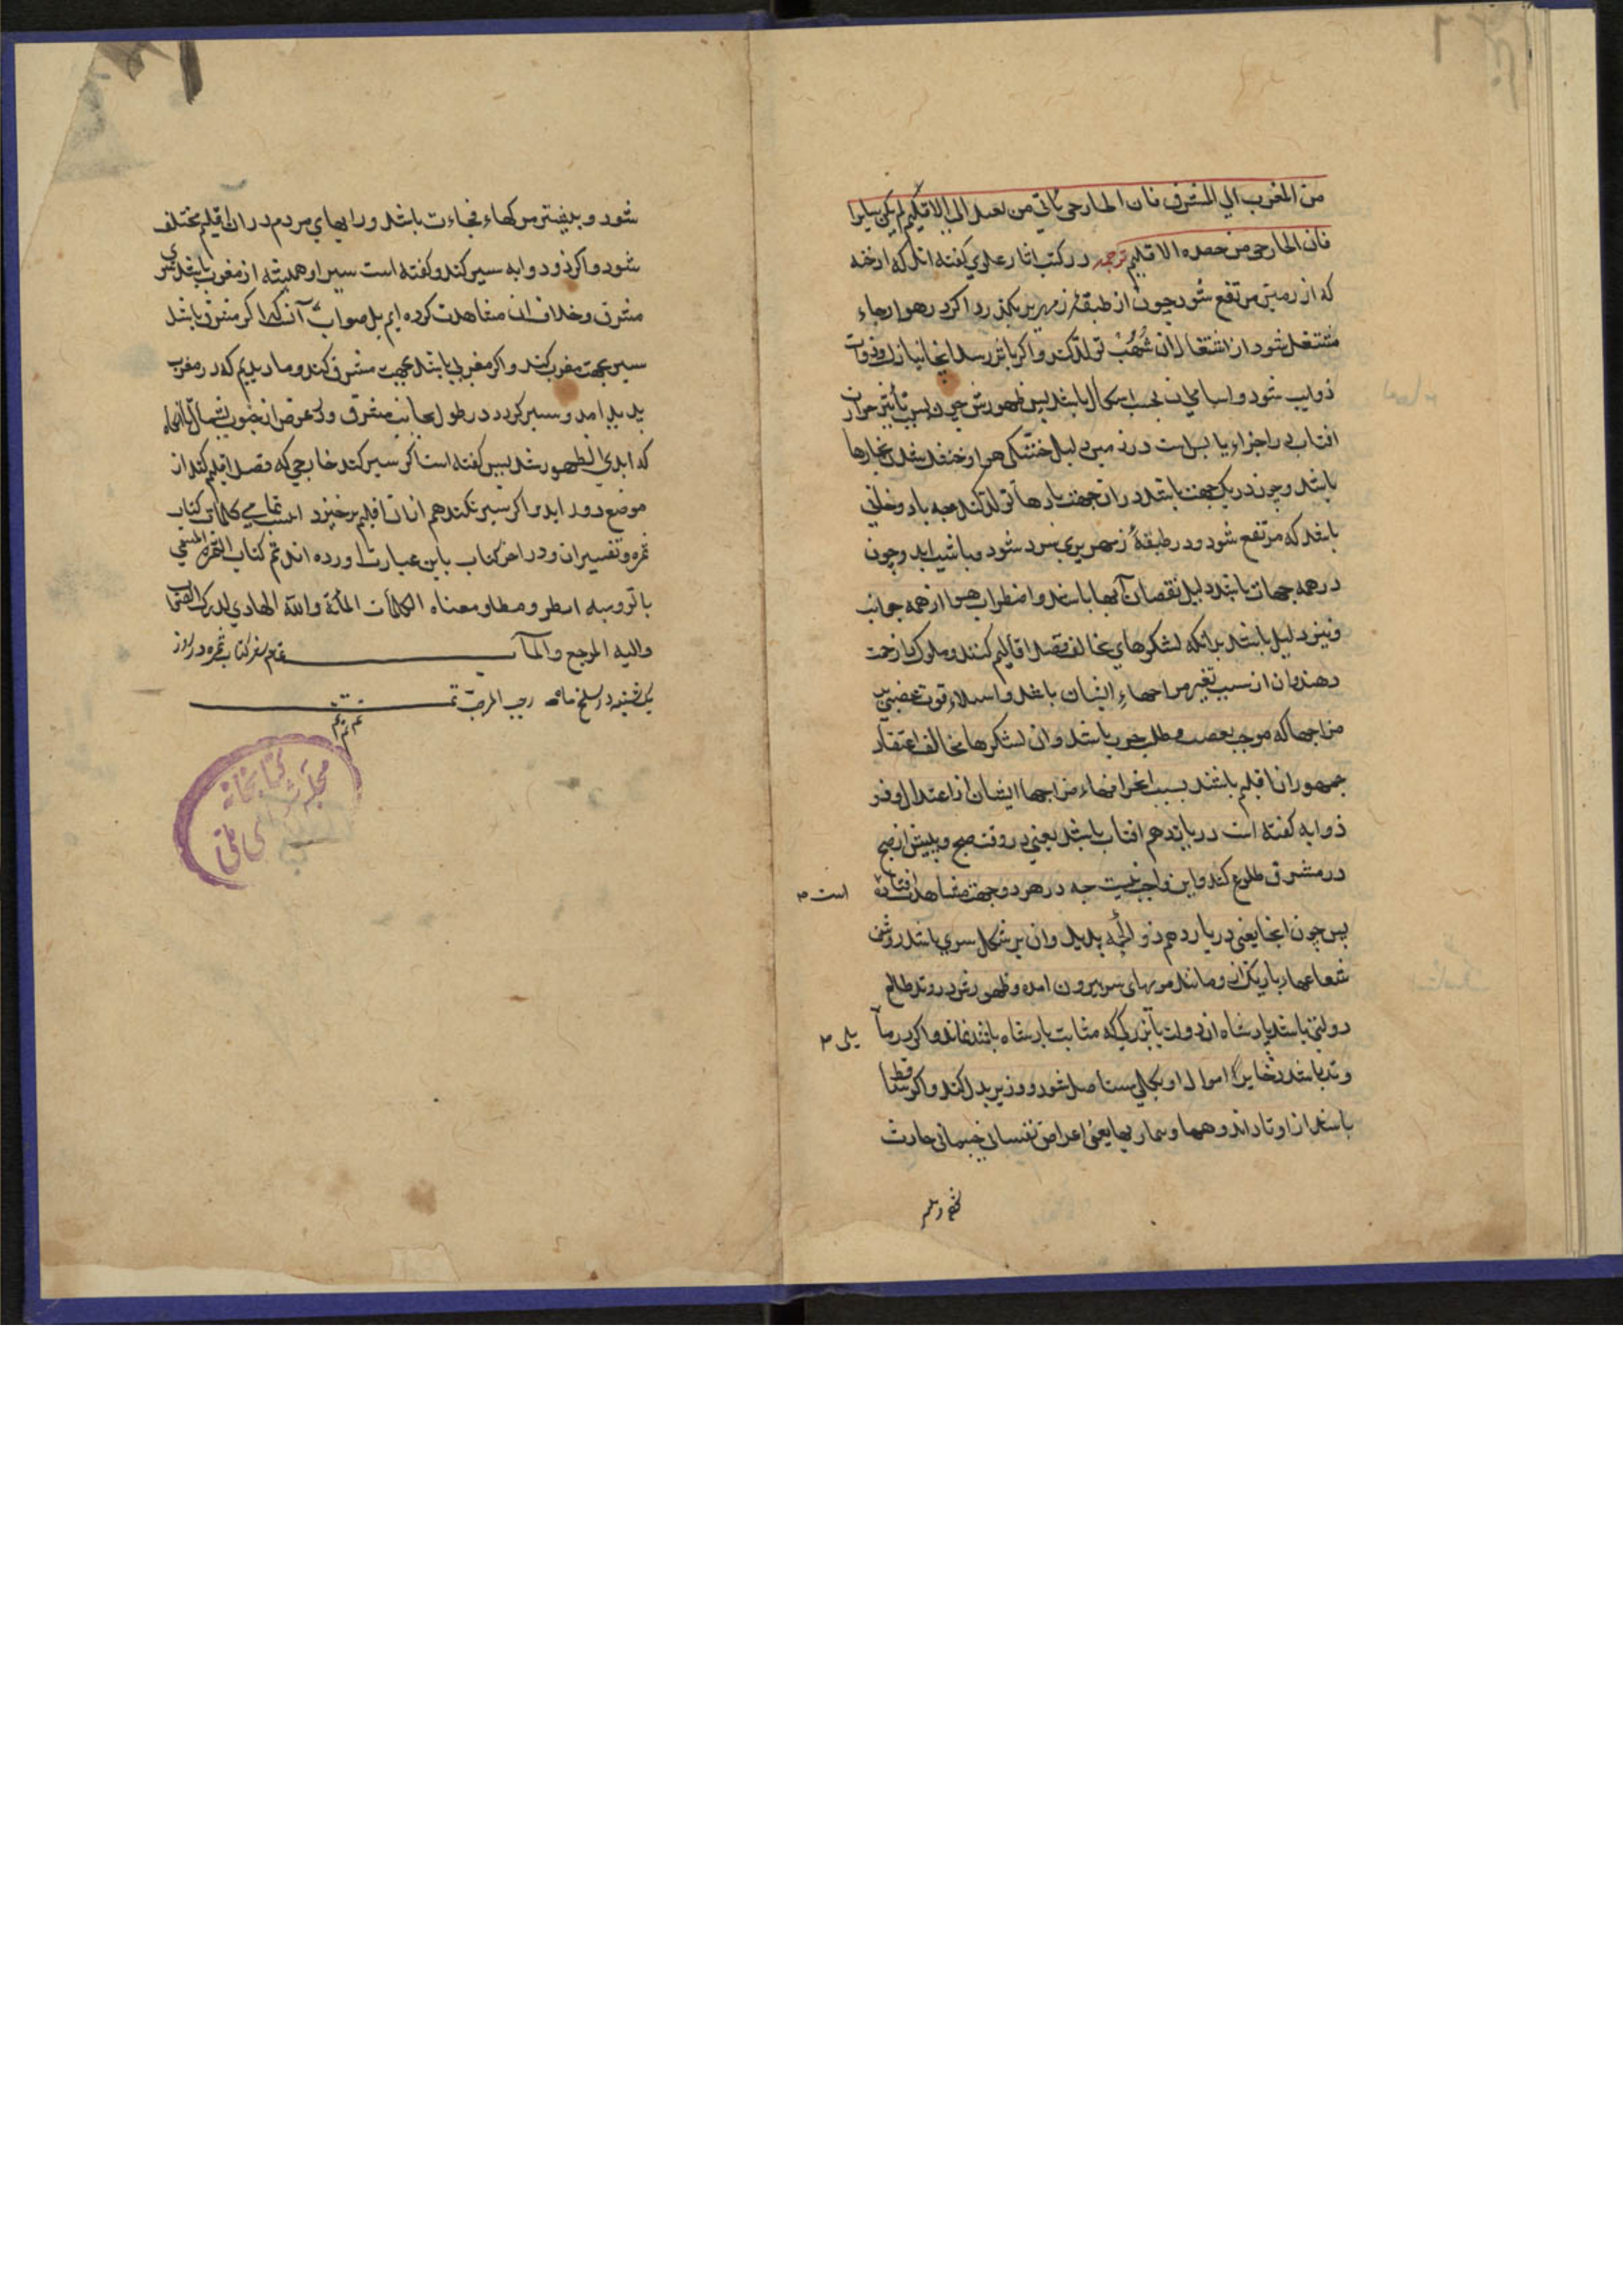 من المغرب الي المشرق فان الخارجی یاتی من بعد الی الاقلیم لم یکن سیارا
فان الخارجی من هذه الاقلیم ترجمه در کتب اثار علوی گفته اند که ادخنه
که از زمین مرتفع شود چون از طبقهٔ زمهریر بگذرد اگر در هوا رجاء
مشتعل شود از اشتعال آن شُهُب تولد کند و اگر باثر رسد
ذوایب شود و اسامی ان بحسب اشکال باشد پس ظهورش چون بسبب تأثیر حرارت
افتاب در اجزاء یابس است در زمین دلیل خشکی هوا و خشک شدن بخارها
باشد و چون در یک جهت باشد در ان جهت بادها تولد کند چه باد دخانی
باشد که مرتفع شود و در طبقهٔ زمهریری سرد شود و باشیب اید و چون
در همه جهات باشد دلیل نقصان آبها باشد و اضطراب هوا از همه جوانب
و نیز دلیل باشد برانکه لشکرهای مخالف قصد اقالیم کنند و ملوک را زحمت
دهند و ان از سبب تغیر مزاجهاءِ انسان باشد و استیلاء قوت غضبی بر
مزاجها که موجب تعصب و طلب حرب باشد و ان لشکرها مخالف اعتقاد
جمهور ان اقلیم باشند بسبب انحرافهاء مزاجها ایشان از اعتدال و ذو
ذوابه گفته است در یازدهم افتاب باشد یعنی در وقت صبح و پیش از صبح
در مشرق طلوع کند و این واجب نیست چه در هر دو جهت مشاهدت افتاده
است
پس چون انجا یعنی در یازدهم ذوالجمه پدید و ان بر شکل سری باشد روشن
شعاعها باریک از و مانند مویهای سر بیرون امده و ظهورش در وتد طالع
دولتی باشد پادشاه ان دولت یا بزرگی که مثابت پادشاه باشد نماند و اگر در ما
یلی
وتد باشد ذخایر و اموال او بکلی مستاصل شود و وزیر بدل کند و اگر ساقط
باشد از اوتاد اندوهها و بیماریها یعنی اعراض نفسانی جسمانی حادث
شود و بیشتر مرگهاء فجاءت باشد و رایهای مردم در ان اقلیم مختلف
شود و اگر ذو ذوابه سیر کند و گفته است سیر او همیشه از مغرب باشد سوی
مشرق و خلاف ان مشاهدت کرده ایم بل صواب آن که اگر مشرقی باشد
سیر بجهت مغرب کند و اگر مغربی باشد بجهت مشرق کند و ما دیدیم که در مغرب
پدید امد و سیر کرد در طول بجانب مشرق و در عرض از جنوب بشمال تا انجاء
که ابدی الظهور شد پس گفته است اگر سیر کند خارجی که قصد اقلیم کند از
موضع دور اید و اگر سیر نکند هم از ان اقلیم برخیزد اینست تمامی کلمات کتاب
ثمره و تفسیر ان و در اخر کتاب باین عبارت اورده اند تم کتاب الثمرة المسمی
بالرومیه انطرومطا و معناه الکلمات المأة والله الهادي لدرک الصواب
والیه المرجع والمآب
یکشنبه در سلخ ماه رجب المرجب تمت
کتابخانه مجلس شورای ملی